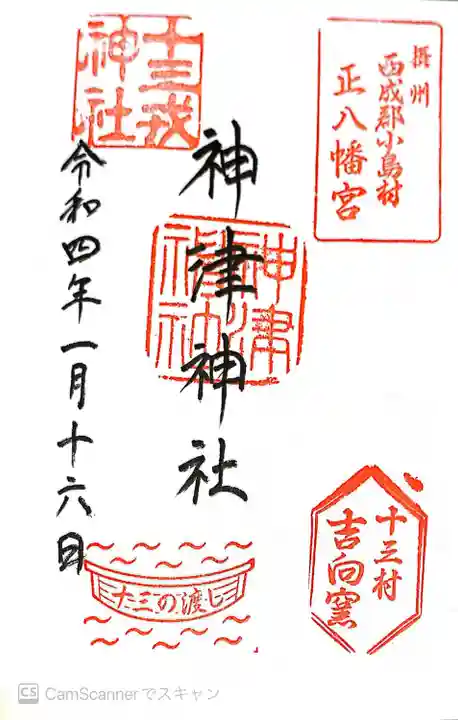 摂州
西成郡小島村
正八幡宮
神津神社
神津神社
十三戎神社
令和四年一月十六日
十三村
吉向窯
十三の渡し
CS CamScannerでスキャン